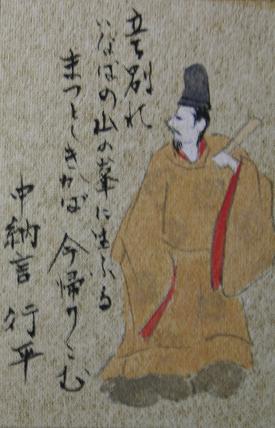 立別れ
いなばの山の峯に生ふる
まつとしきかば 今帰りこむ
中納言 行平